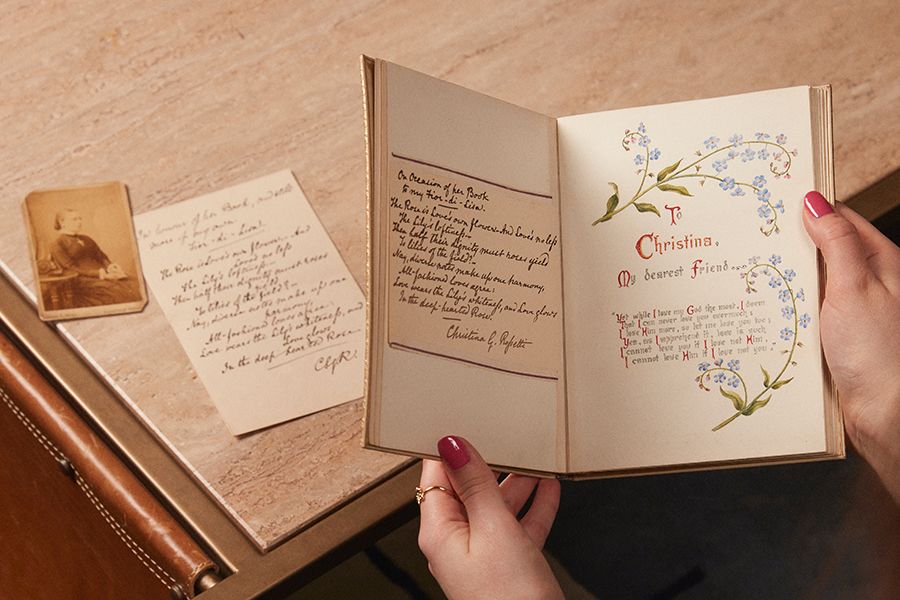 In honour of her Book, and
more of my own
Fior-di-Lisa.
The Rose is Love's own flower. And
Love's no less
The Lily's loftiness:—
Then half their dignity must roses
yield
To lilies of the field?—
Nay, diverse notes make up one
harmony,
All-fashioned loves agree:
Love wears the Lily's whiteness, and
Love glows
In the deep-hearted Rose.
CGR.
On Occasion of her Book
to my Fior-di-Lisa.
The Rose is Love's own flower. And Love's no less
The Lily's loftiness:—
Then half their dignity must roses yield
To lilies of the field?—
Nay, diverse notes make up one harmony,
All-fashioned loves agree:
Love wears the Lily's whiteness, and Love glows
In the deep-hearted Rose.
Christina G. Rossetti
To
Christina.
My dearest Friend
"Yet while I love my God the most, I deem
That I can never love you overmuch;
I love Him more, so let me love you too;
Yea, as I apprehend it, love is such
I cannot love you if I love not Him,
I cannot love Him if I love not you."